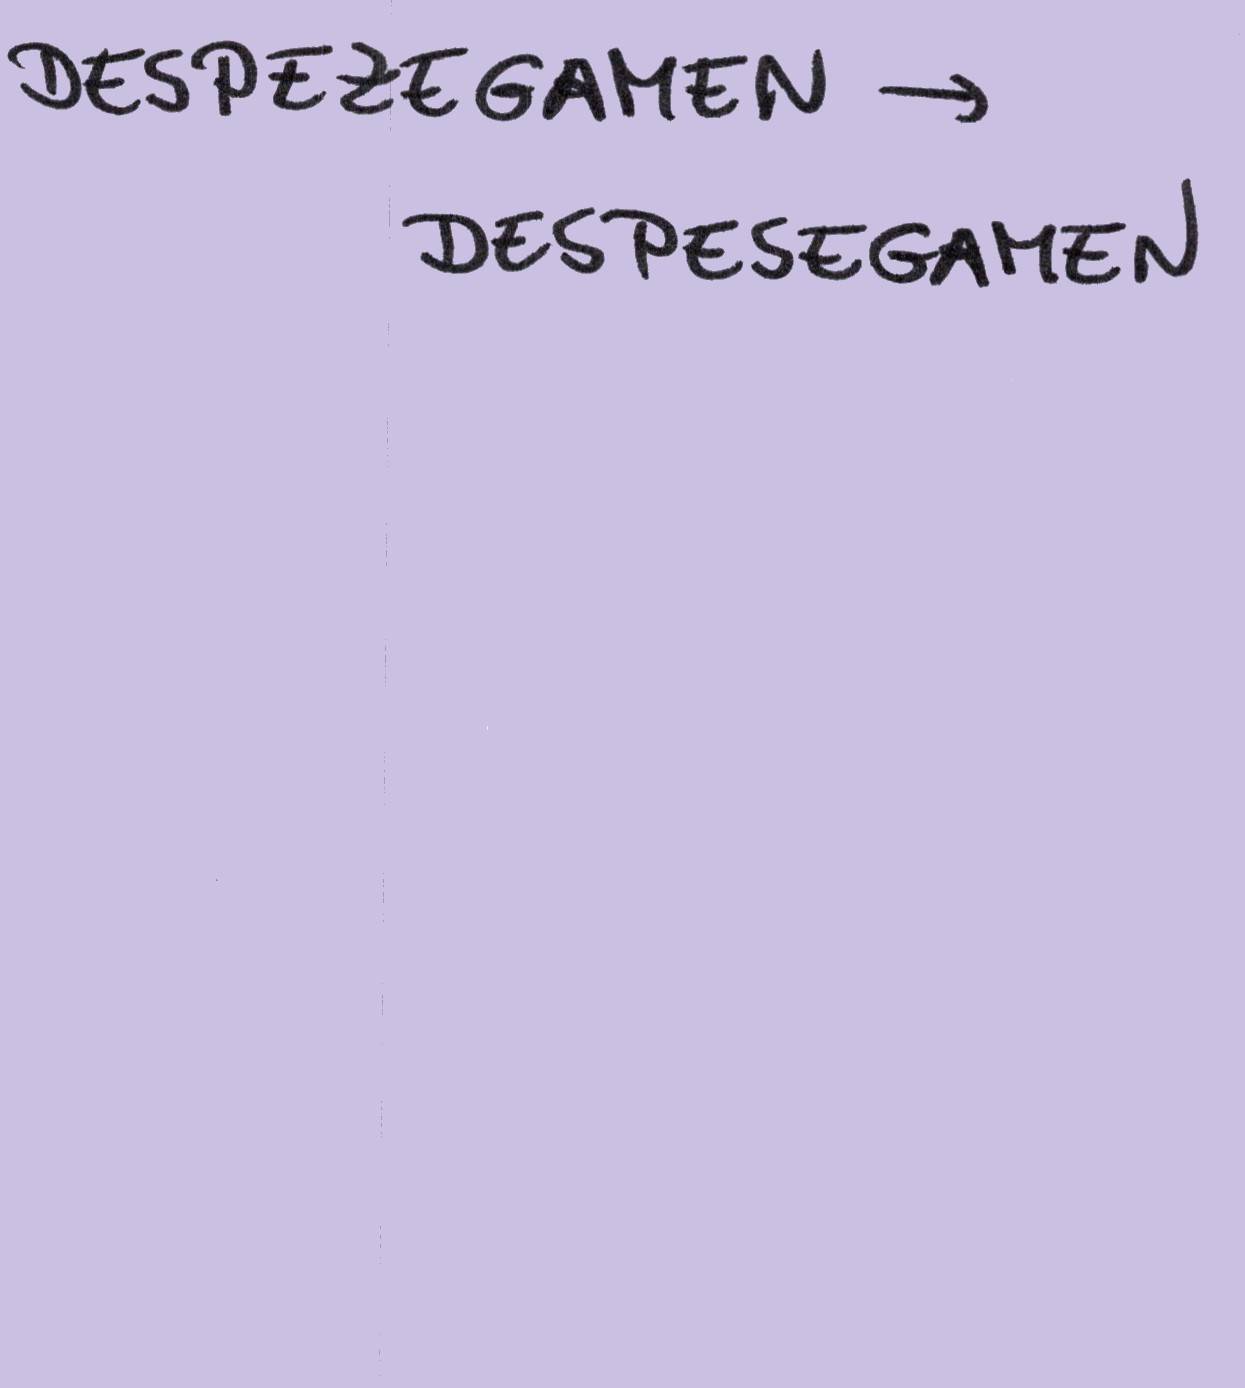 DESPEZEGAMEN →
DESPESEGAMEN